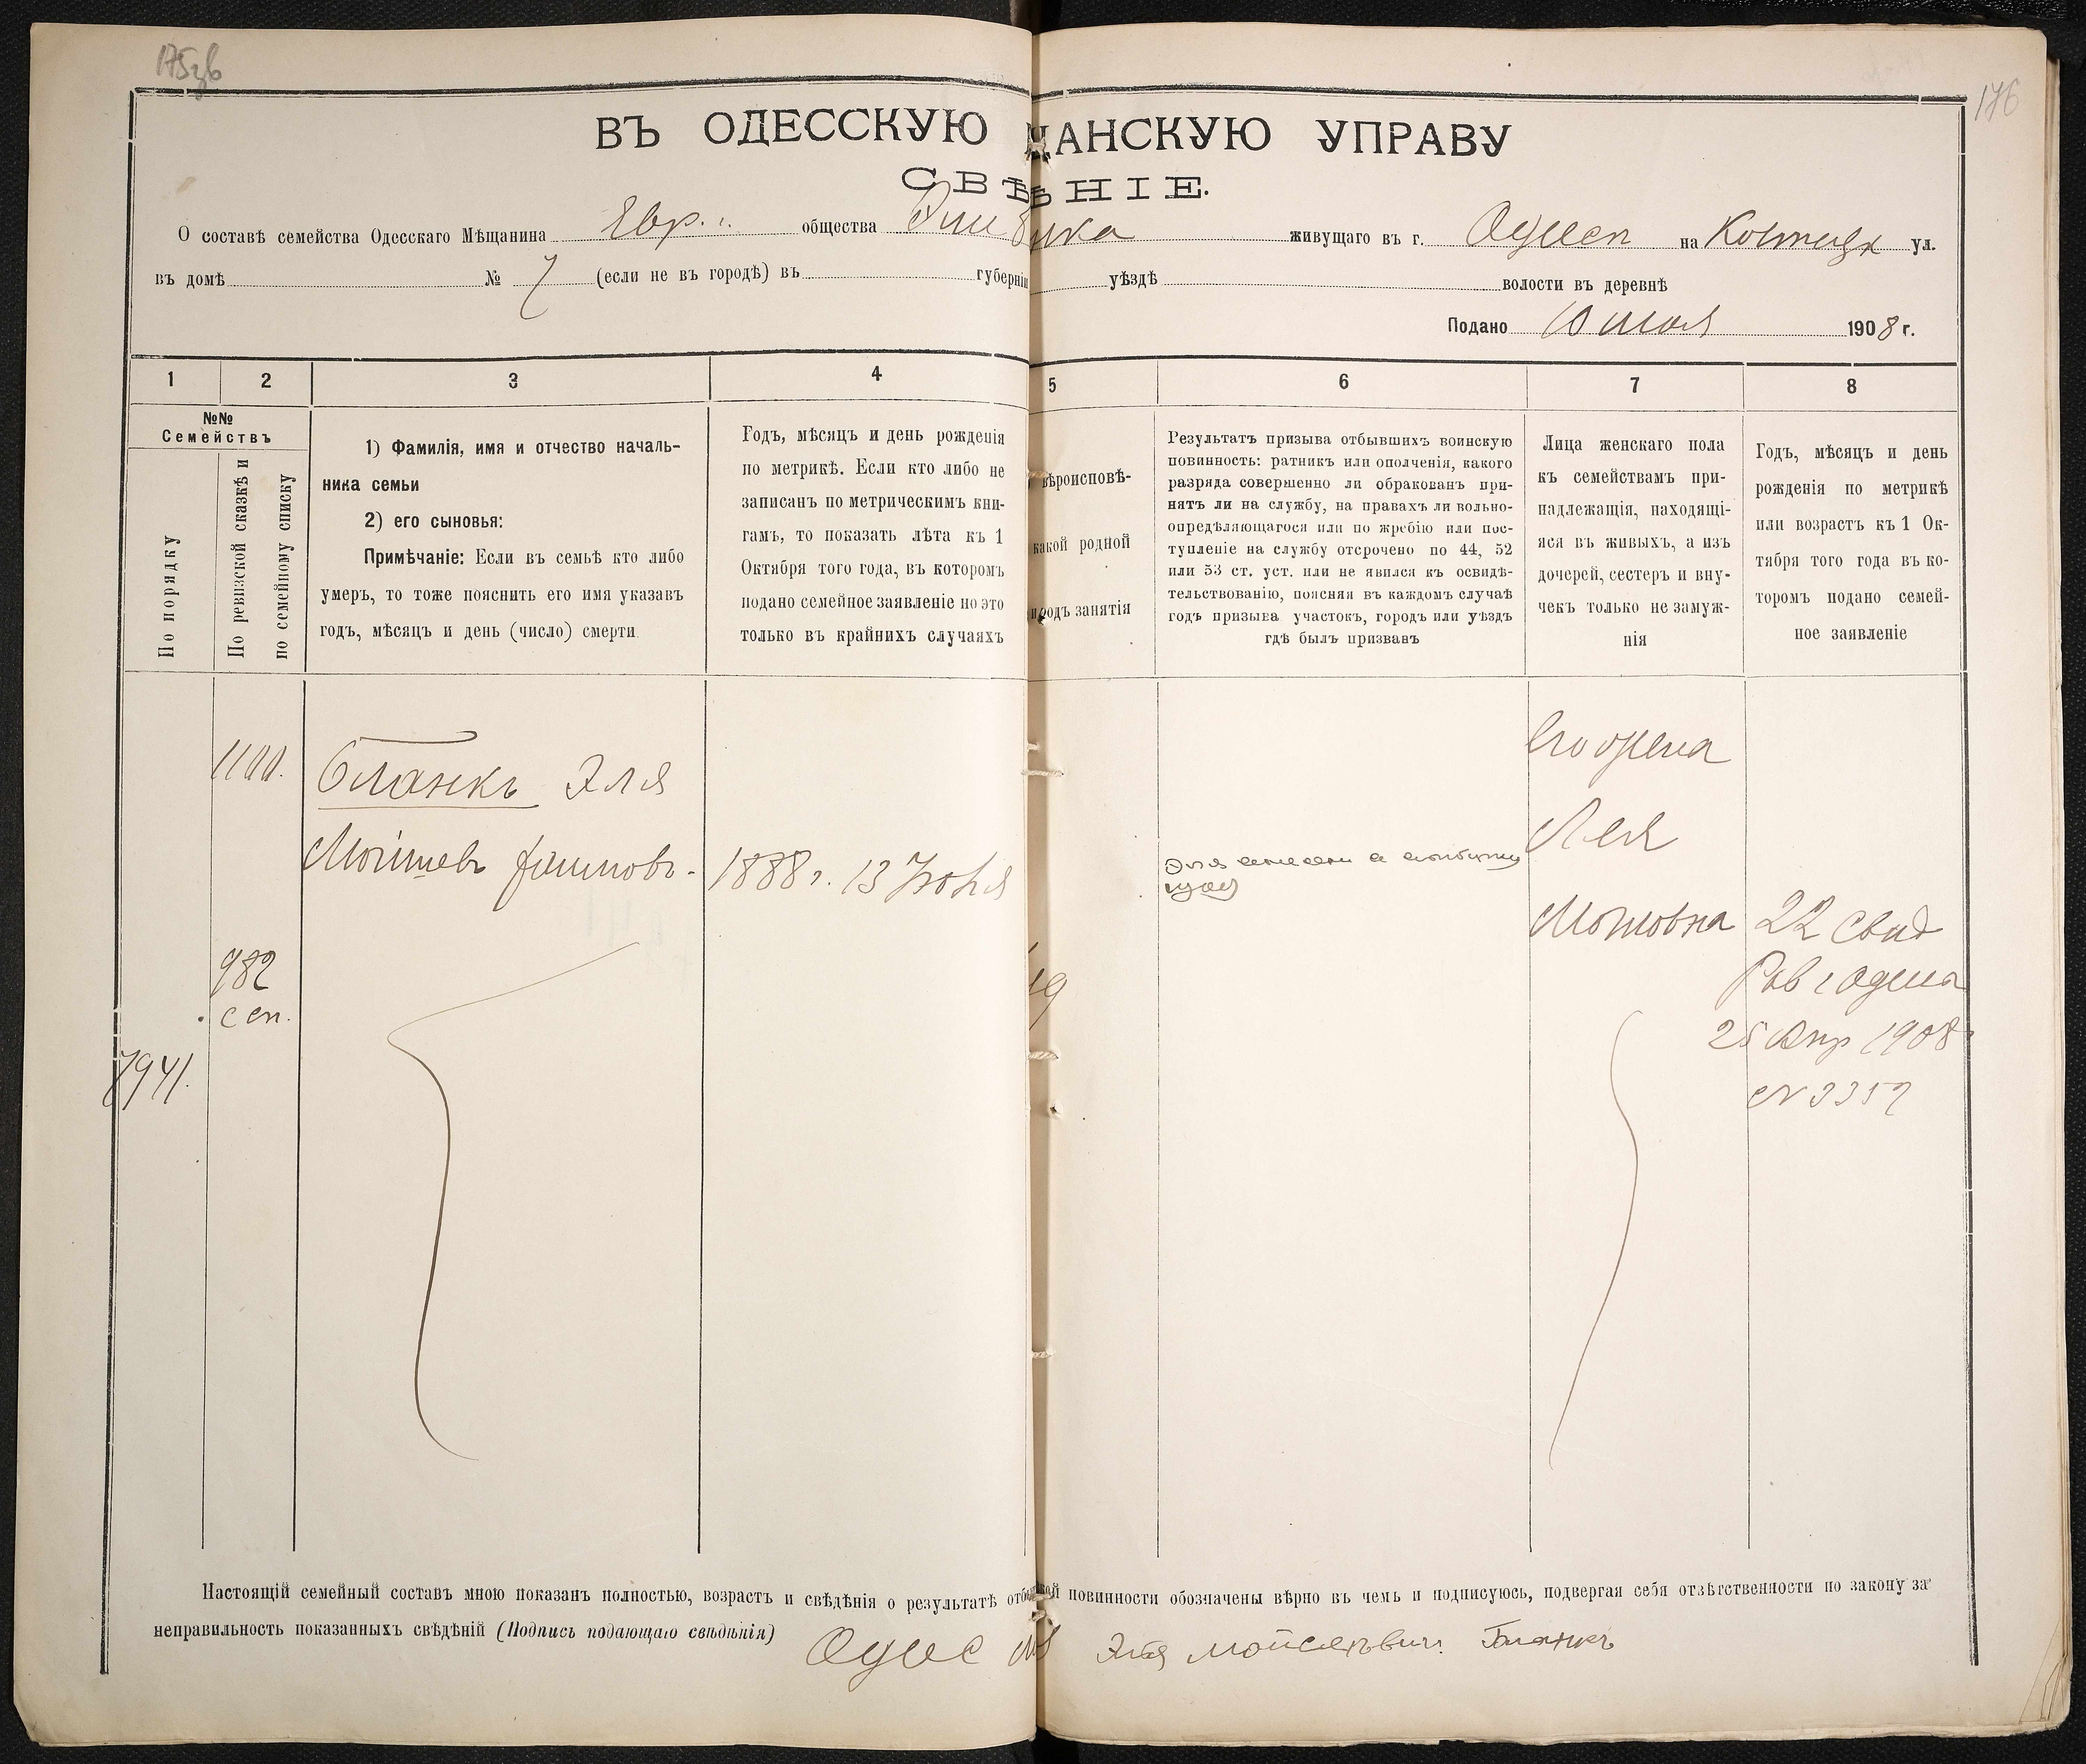 176
ВЪ ОДЕССКУЮ ЩАНСКУЮ УПРАВУ
СВѢ НІЕ.
О составѣ семейства Одесскаго Мѣщанина Евр. общества живущаго въ г. на ул.
въ домѣ № 7 (если не въ городѣ) въ губерніи уѣздѣ волости въ деревнѣ
Подано 10 1908 г.
1 2 3 4 5 6 7 8
№№
Семействъ
По порядку
По ревизской сказкѣ и
по семейному списку
1) Фамилія, имя и отчество началь-
ника семьи
2) его сыновья:
Примѣчаніе: Если въ семьѣ кто либо
умеръ, то тоже пояснить его имя указавъ
годъ, мѣсяцъ и день (число) смерти
Годъ, мѣсяцъ и день рожденія
по метрикѣ. Если кто либо не
записанъ по метрическимъ кни-
гамъ, то показать лѣта къ 1
Октября того года, въ которомъ
подано семейное заявленіе но это
только въ крайнихъ случаяхъ
вѣроисповѣ-
какой родной
родъ занятія
Результатъ призыва отбывшихъ воинскую
повинность: ратникъ или ополченія, какого
разряда совершенно ли обракованъ при-
нятъ ли на службу, на правахъ ли вольно-
опредѣляющагося или по жребію или пос-
тупленіе на службу отсрочено по 44, 52
или 53 ст. уст. или не явился къ освидѣ-
тельствованію, поясняя въ каждомъ случаѣ
годъ призыва участокъ, городъ или уѣздъ
гдѣ былъ призванъ
Лица женскаго пола
къ семействамъ при-
надлежащія, находящі-
яся въ живыхъ, а изъ
дочерей, сестеръ и вну-
чекъ только не замуж-
нія
Годъ, мѣсяцъ и день
рожденія по метрикѣ
или возрастъ къ 1 Ок-
тября того года въ ко-
торомъ подано семей-
ное заявленіе
Бланкъ Эля
1888 г. 13 Іюня
982
сп.
7941.
Его жена
Лея
Мотовна
22 Свид
Рав г Одессы
25 Апр 1908 г
N 3352
Настоящій семейный составъ мною показанъ полностью, возрастъ и свѣдѣнія о результатѣ отбы кой повинности обозначены вѣрно въ чемъ и подписуюсь, подвергая себя отвѣтственности по закону за
неправильность показанныхъ свѣдѣній (Подпись подающаго свѣдѣнія) Одес м Эля Мойсеевич Бланкъ